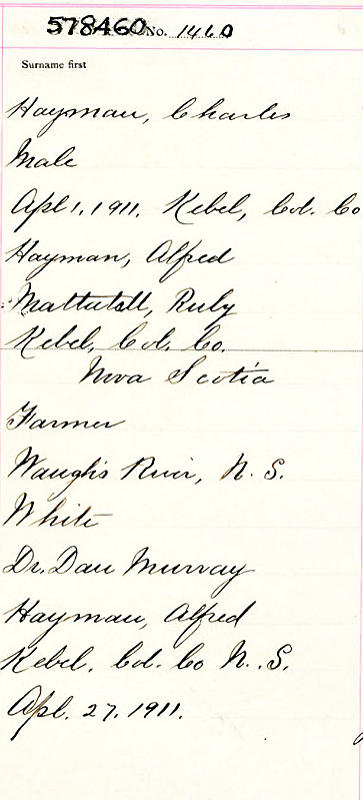 578460 No. 1460
Surname first
Hayman, Charles
Male
Apl 1, 1911. Kebel, Col. Co
Hayman, Alfred
Mattatall, Ruby
Kebel, Col. Co.
Nova Scotia
Farmer
Waugh's River, N. S.
White
Dr. Dan Murray
Hayman, Alfred
Kebel, Col. Co N. S.
Apl. 27, 1911.